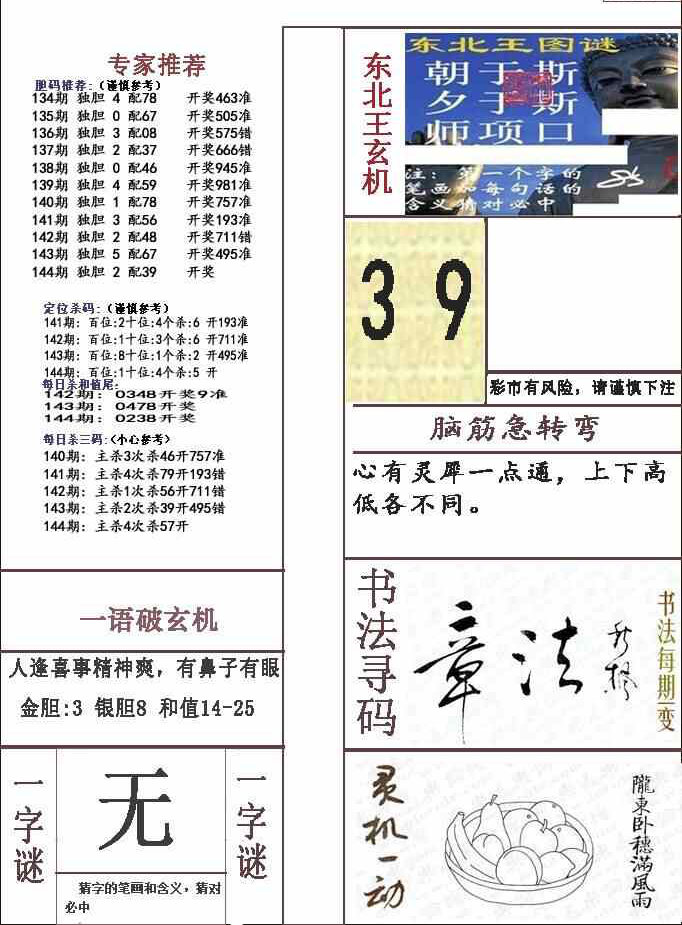 专家推荐
胆码推荐:(谨慎参考)
134期 独胆 4 配78 开奖463准
135期 独胆 0 配67 开奖505准
136期 独胆 3 配08 开奖575错
137期 独胆 2 配37 开奖666错
138期 独胆 0 配46 开奖945准
139期 独胆 4 配59 开奖981准
140期 独胆 1 配78 开奖757准
141期 独胆 3 配56 开奖193准
142期 独胆 2 配48 开奖711错
143期 独胆 5 配67 开奖495准
144期 独胆 2 配39 开奖
定位杀码:(谨慎参考)
141期: 百位:2十位:4个杀:6 开193准
142期: 百位:1十位:3个杀:6 开711准
143期: 百位:8十位:1个杀:2 开495准
144期: 百位:1十位:4个杀:5 开
每日杀和值尾:
142期: 0348开奖9准
143期: 0478开奖
144期: 0238开奖
每日杀三码:(小心参考)
140期: 主杀3次杀46开757准
141期: 主杀4次杀79开193错
142期: 主杀1次杀56开711错
143期: 主杀2次杀39开495错
144期: 主杀4次杀57开
一语破玄机
人逢喜事精神爽，有鼻子有眼
金胆:3 银胆8 和值14-25
一字谜
无
一字谜
猜字的笔画和含义，猜对
必中
东北王玄机
东北王图谜
朝于斯
夕于斯
师项口
注: 第一个字的
笔画加每句话的
含义猜对必中
3 9
彩市有风险，请谨慎下注
脑筋急转弯
心有灵犀一点通，上下高
低各不同。
书法寻码
章法
书法每期一变
灵机一动
隴東卧穗滿風雨